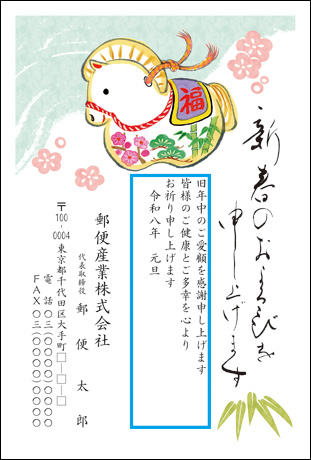 福
新春のお喜びを
申し上げます
旧年中のご愛顧を感謝申し上げます
皆様のご健康とご多幸を心より
お祈り申し上げます
令和八年 元旦
郵便産業株式会社
代表取締役 郵便太郎
〒100-0004 東京都千代田区大手町□-□-□
電話〇三(〇〇〇〇)〇〇〇〇
FAX〇三(〇〇〇〇)〇〇〇〇